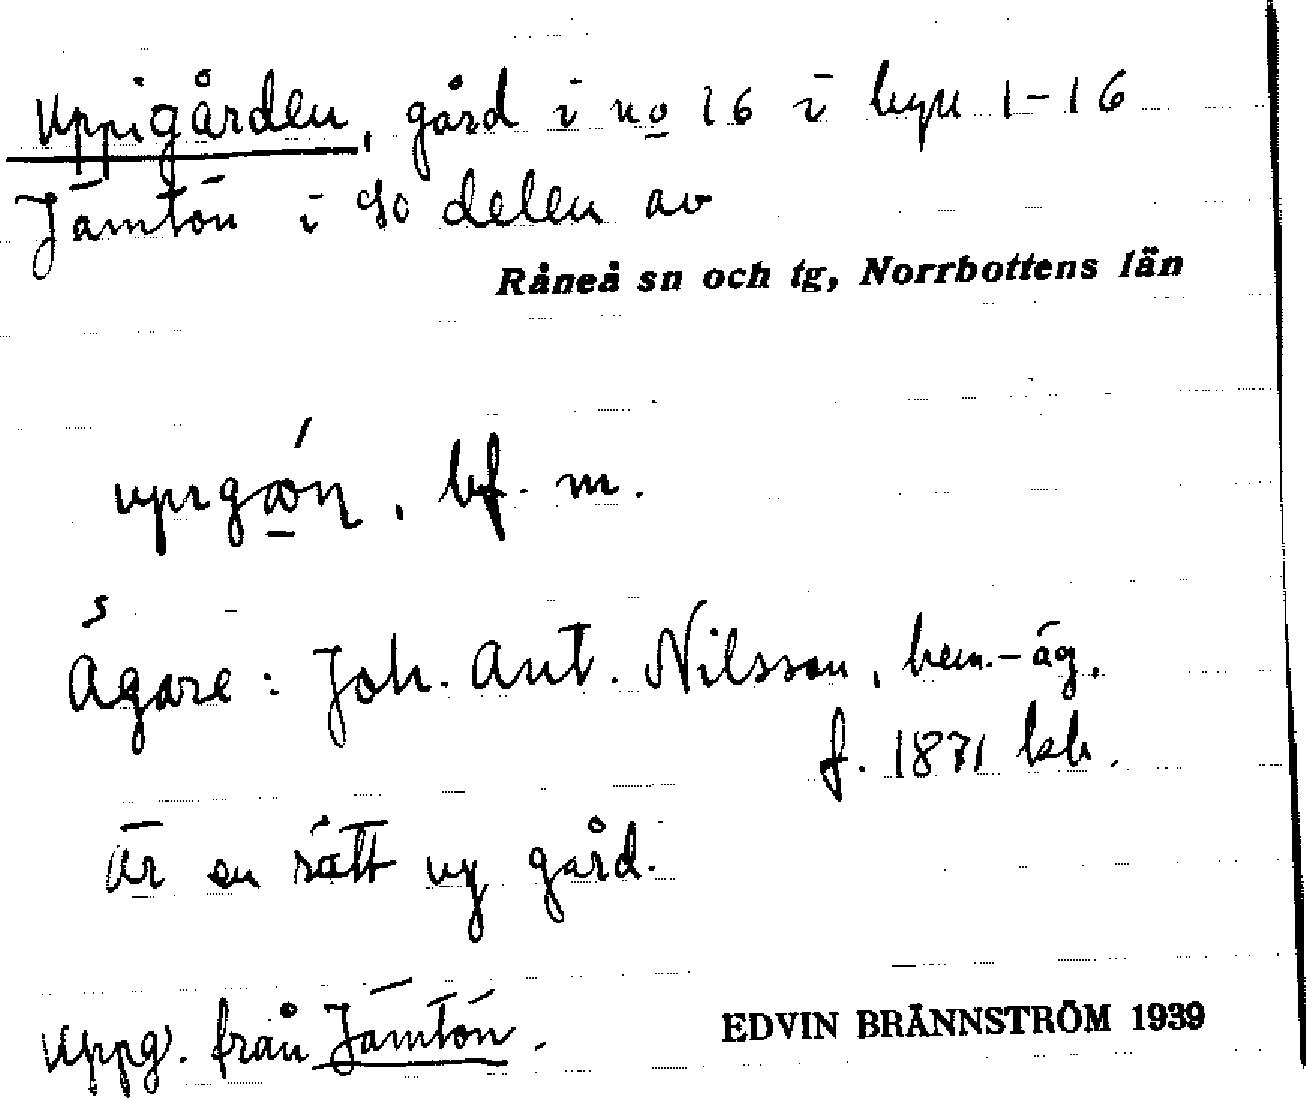 Uppigården, gård i no 16 i byn 1-16
Jämtön i SO delen av
Råneå sn och tg, Norrbottens län
bf. m.
Ägare: Joh. Ant. Nilsson, hem.-äg.
f. 1871 kb.
Är en rätt ny gård.
Uppg. från Jämtön.
EDVIN BRÄNNSTRÖM 1939